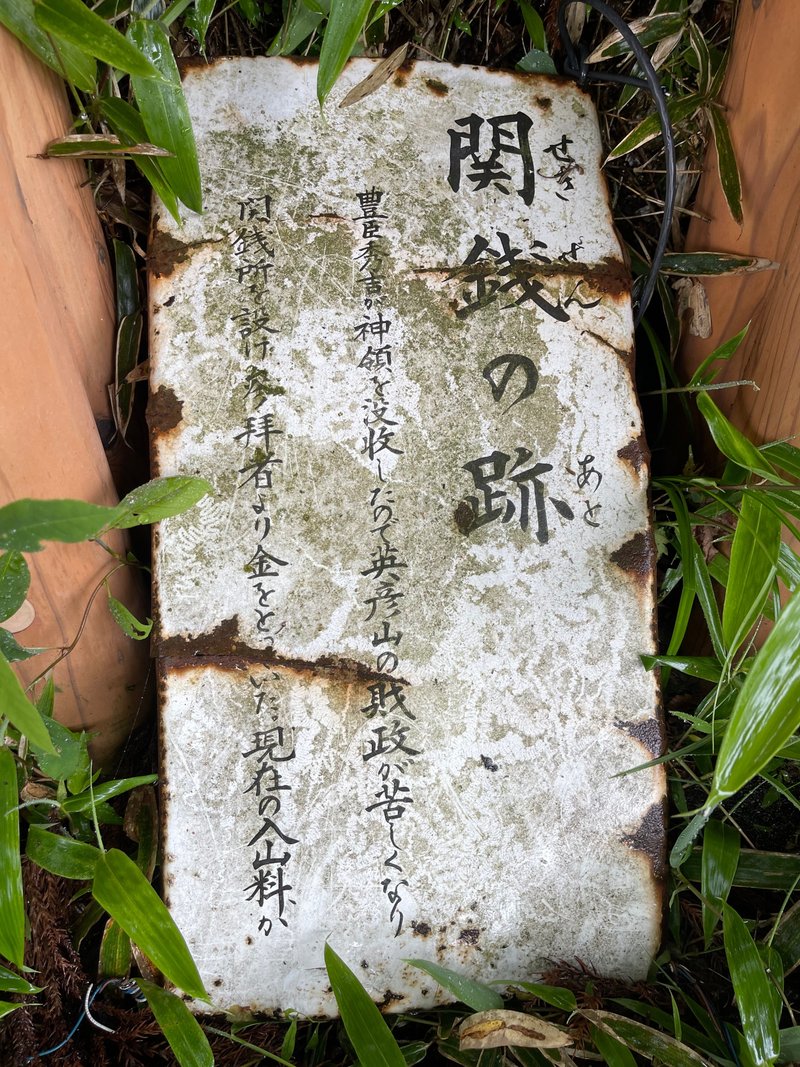 関銭の跡
せきぜん あと
豊臣秀吉が神領を没収したので英彦山の財政が苦しくなり
関銭所を設け参拝者より金をとっていた。現在の入山料か